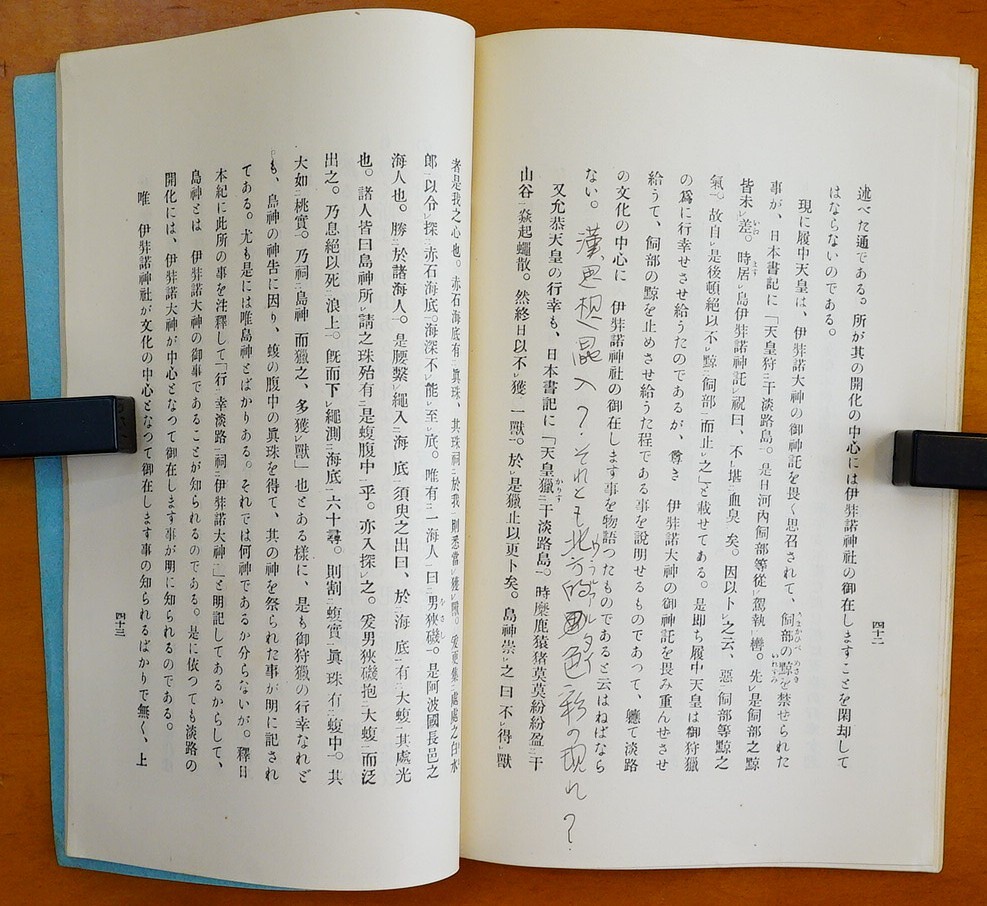 四十二
述べた通である。所が其の開化の中心には伊弉諾神社の御在しますことを閑却して
はならないのである。
現に履中天皇は、伊弉諾大神の御神託を畏く思召されて、飼部の黥を禁ぜられた
事が、日本書記に「天皇狩二于淡路島一。是日河內飼部等從レ駕執レ轡。先レ是飼部之黥
皆未レ差。時居レ島伊弉諾神託レ祝曰、不レ堪二血臭一矣。因以卜レ之云、惡二飼部等黥之
氣一。故自レ是後頓絕以不レ黥二飼部一而止レ之」と載せてある。是即ち履中天皇は御狩獵
の爲に行幸せさせ給うたのであるが、尊き 伊弉諾大神の御神託を畏み重んせさせ
給うて、飼部の黥を止めさせ給うた程である事を說明せるものであつて、軈て淡路
の文化の中心に 伊弉諾神社の御在します事を物語つたものであると云はねばなら
ない。
漢思想混入?それとも北方的 色彩の現れ?
又允恭天皇の行幸も、日本書記に「天皇獵二于淡路島一。時麋鹿猿猪莫莫紛紛盈二于
山谷一焱起蠅散。然終日以不レ獲二一獸一。於レ是獵止以更卜矣。島神祟レ之曰不レ得レ獸
者是我之心也。赤石海底有二眞珠、其珠祠二於我一則悉當レ獲レ獸。爰更集二處處之白水
郎一以令レ探二赤石海底。海深不レ能レ至レ底。唯有二一海人一曰二男狹磯一。是阿波國長邑之
海人也。勝二於諸海人一。是腰繫レ繩入二海底一須臾之出曰、於二海底一有二大蝮一其處光
也。諸人皆曰島神所レ請之珠殆有二是蝮腹中一乎。亦入探レ之。爰男狹磯抱二大蝮一而泛
出之。乃息絕以死二浪上一。旣而下レ繩測二海底一六十尋。則割レ蝮實二眞珠有二蝮中一。其
大如二桃實一。乃祠二島神一而獵之、多獲レ獸」也とある樣に、是も御狩獵の行幸なれど
も、島神の神吿に因り、蝮の腹中の眞珠を得て、其の神を祭られた事が明に記され
てある。尤も是には唯島神とばかりある。それでは何神であるか分らないが。釋日
本紀に此所の事を注釋して「行二幸淡路一祠二伊弉諾大神一」と明記してあるからして、
島神とは 伊弉諾大神の御事であることが知られるのである。是に依つても淡路の
開化には、伊弉諾大神が中心となつて御在します事が明に知られるのである。
唯 伊弉諾神社が文化の中心となつて御在します事の知られるばかりで無く、上
四十三